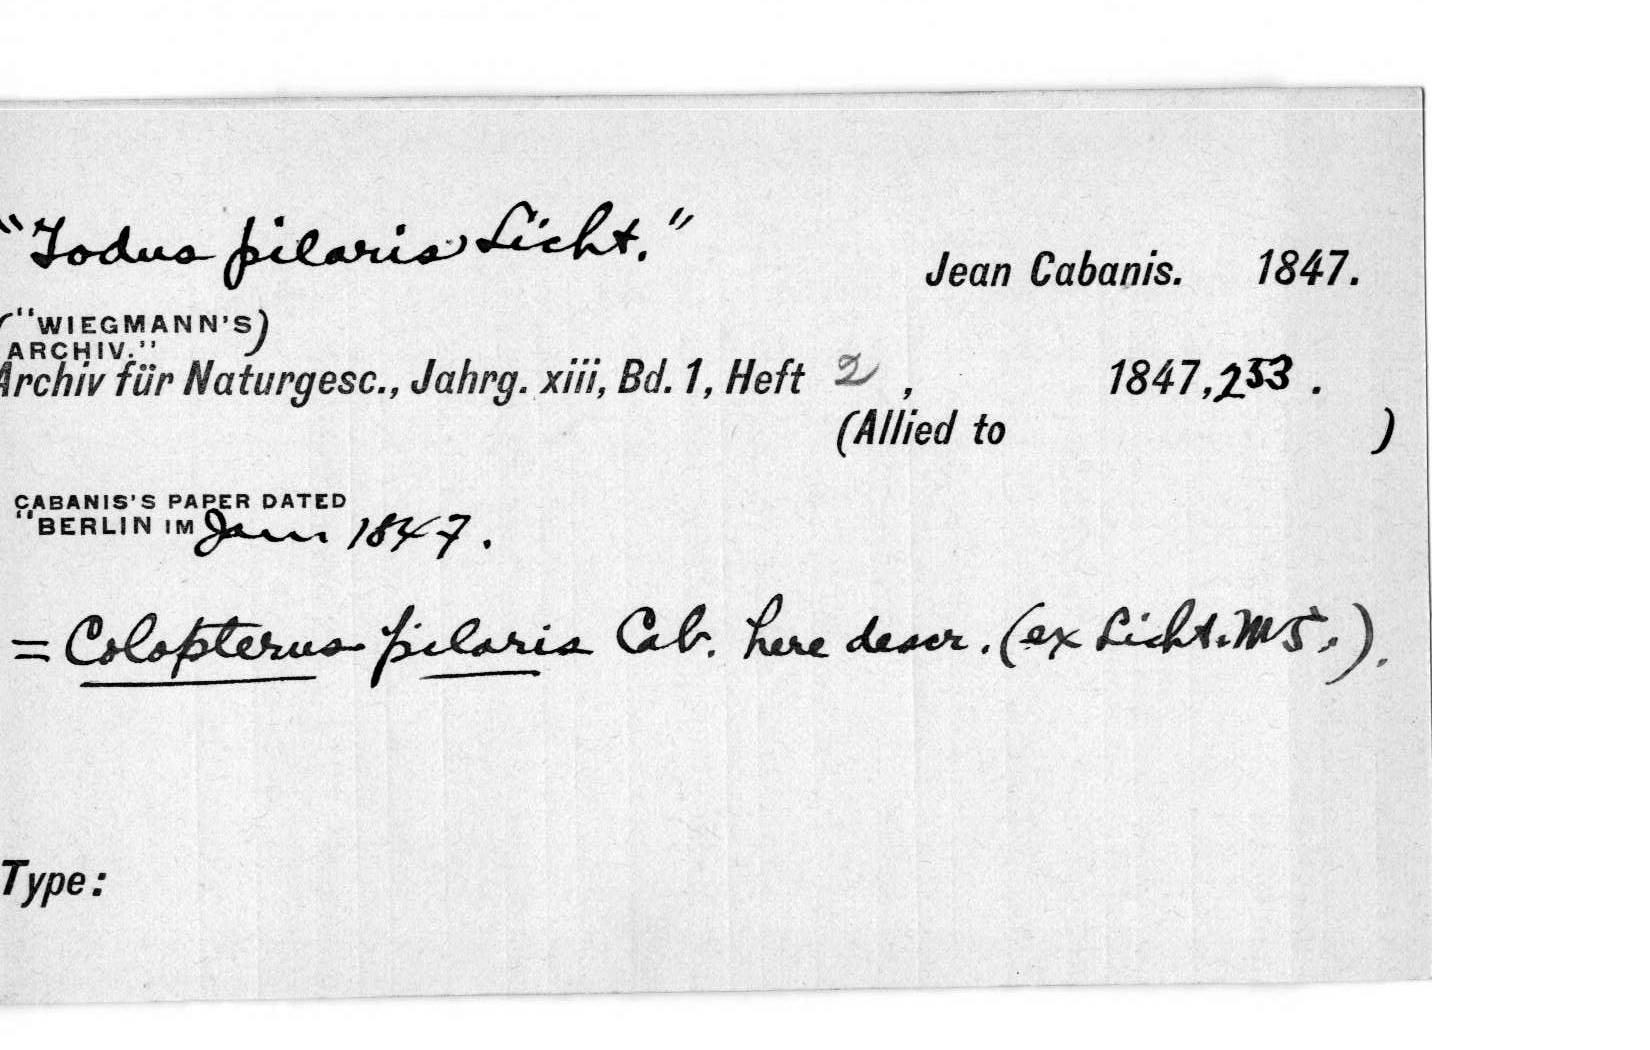 "Todus pilaris Licht."
Jean Cabanis. 1847.
("WIEGMANN'S)
ARCHIV."
Archiv für Naturgesc., Jahrg. xiii, Bd. 1, Heft 2, 1847, 253.
(Allied to )
CABANIS'S PAPER DATED
"BERLIN IM Jan 1847.
= Colopterus pilaris Cab. here descr. (ex Licht. MS.).
Type: